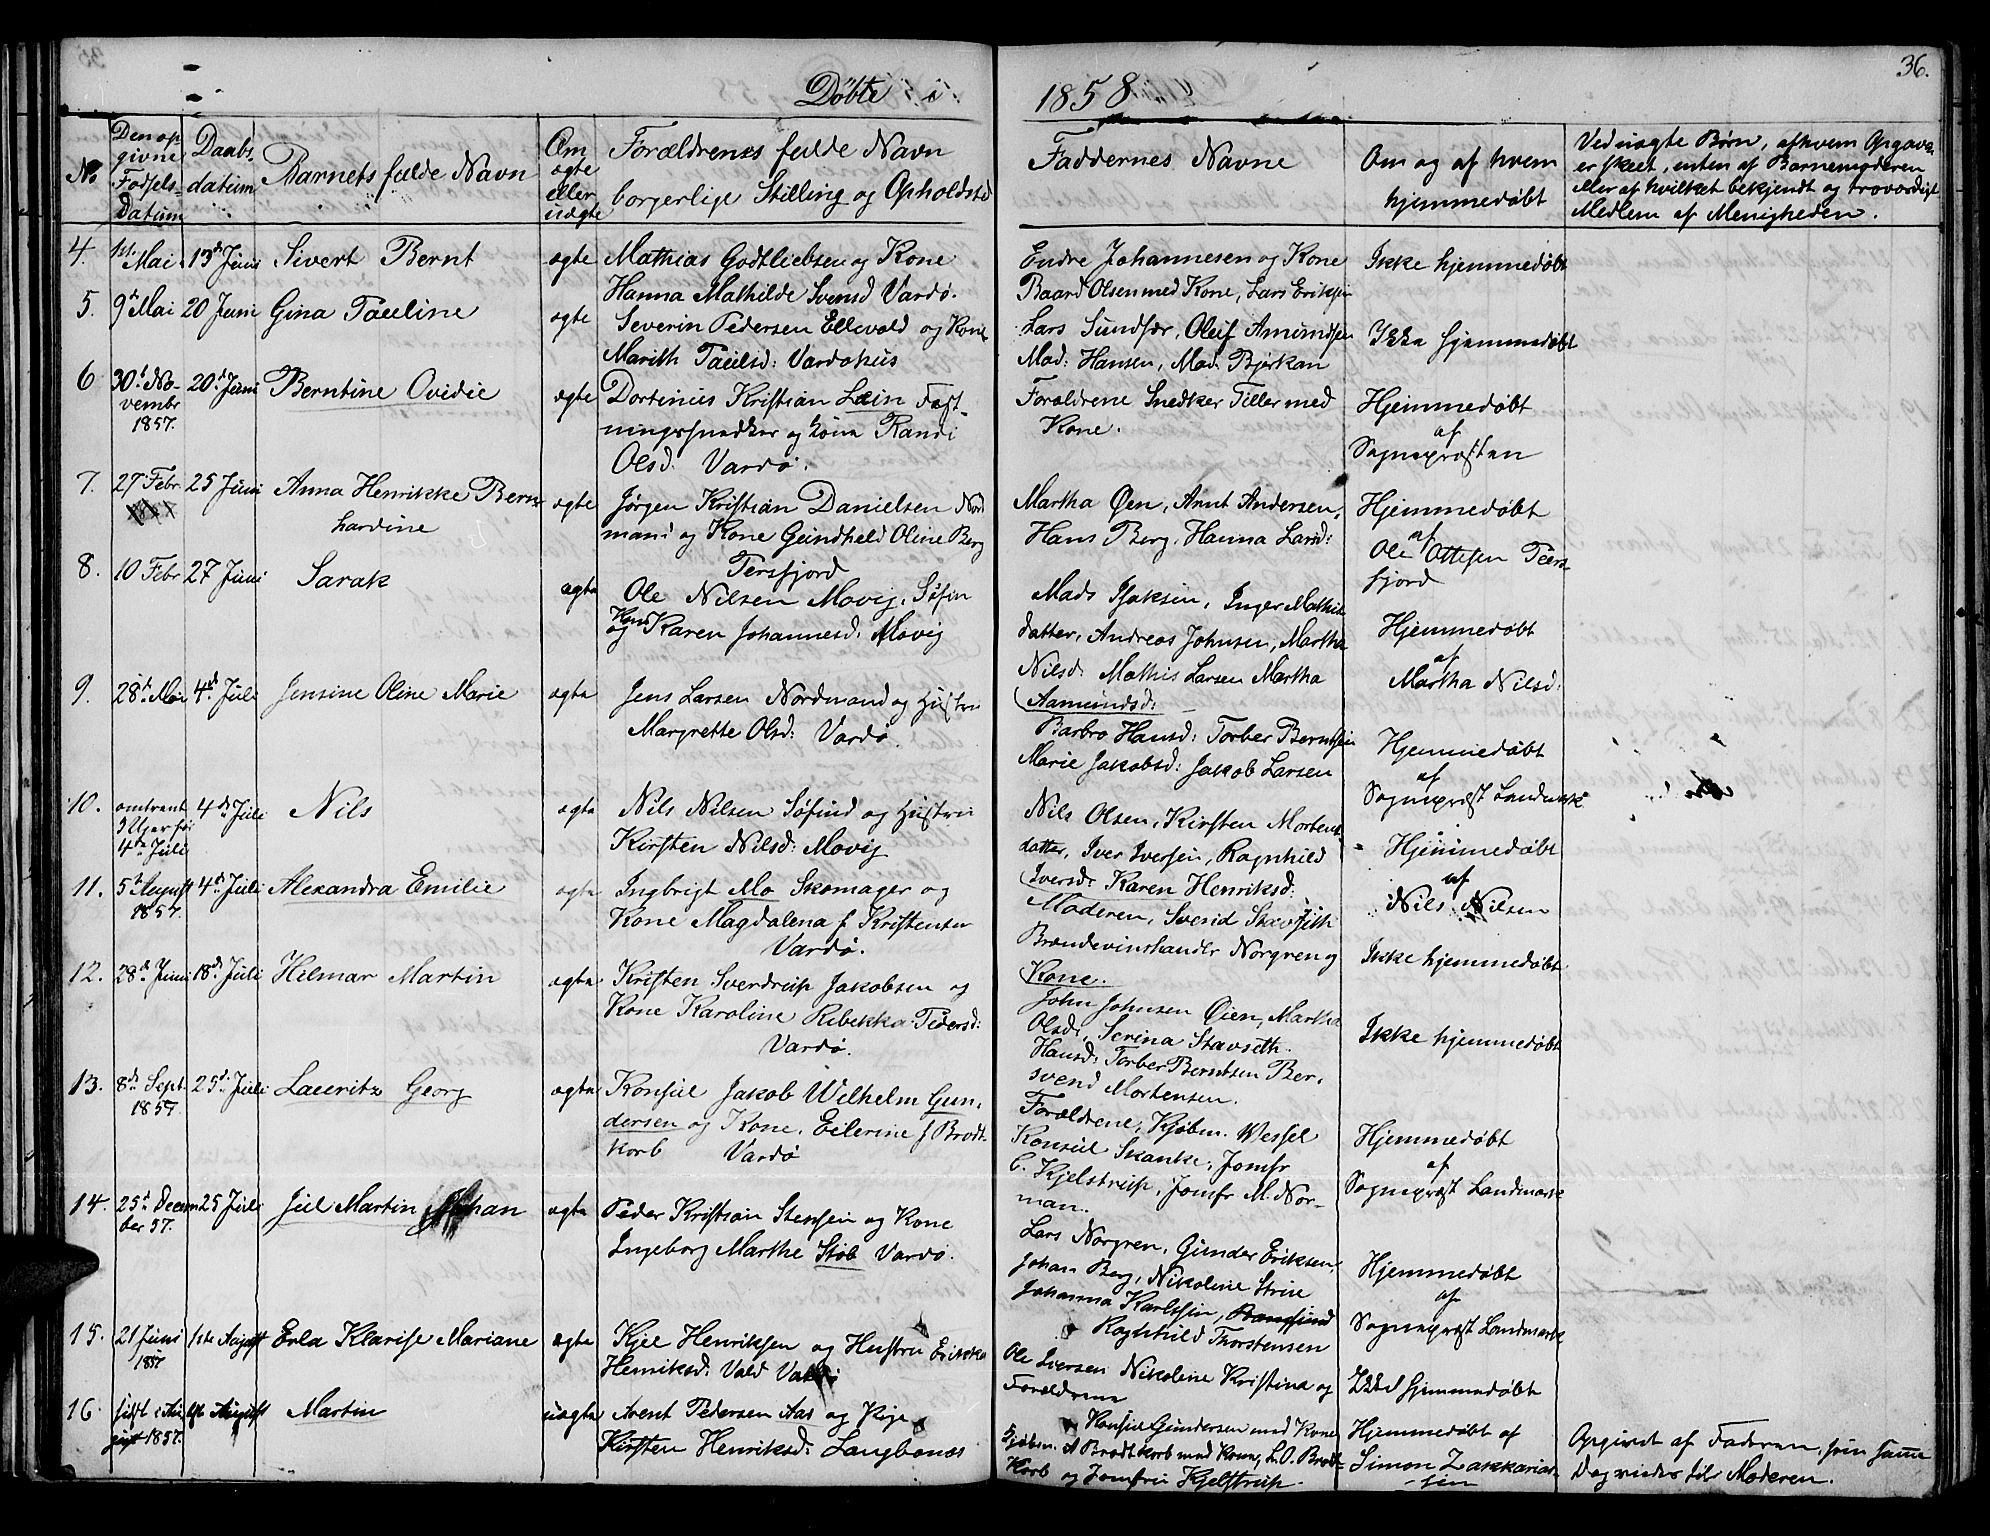 Döbte i
1858
36.
No
Den op-
givne
Fødsels-
Datum
Daabs-
datum
Barnets fulde Navn
Om
ægte
eller
uægte
Forældrenes fulde Navn
borgerlige Stilling og Opholdsted
Faddernes Navne
Om og af hvem
hjemmedøbt
Ved uægte Børn, af hvem Opgave
er skeet, enten af Barnemoderen
eller af hvilket bekjendt og troværdigt
Medlem af Menigheden.
4. 1st Mai 13de Juni Sivert Bernt ægte Mathias Godtliebsen og Kone
Hanna Mathilde Svensd Vardø.
Endre Johannesen og Kone
Baard Olsen med Kone, Lars Eriksen
Ikke hjemmedøbt
5. 9de Mai 20 Juni Gina Pauline ægte Severin Pedersen Ellevold og Kone
Marith Paulsd: Vardøhus
Lars Sundfær, Oluf Amundsen
Mad: Hansen, Mad: Bjørkan
Ikke hjemmedøbt
6 30t No-
vembr
1857.
20d Juni Berntine Ovidie ægte Dortinus Kristian Lein Fæst-
ningssnedker og Kone Randi
Olsd: Vardø.
Forældrene Snedker Tiller med
Kone.
Hjemmedøbt
af
Sognepræsten
7. 27 Febr 25 Juni Anna Henrikke Bern-
hardine
ægte Jørgen Kristian Danielsen Nord
mand og Kone Gundheld Oline Berg
Persfjord
Martha Øen, Arnt Andersen,
Hans Berg, Hanna Larsd:
Hjemmedøbt
af
Ole Ottesen Pers-
fjord
8. 10 Febr 27 Juni Sarak ægte Ole Nilsen Movig, Søfin
og Kone Karen Johannesd: Movig
Mads Isaksen, Inger Mathis
datter, Andreas Johnsen, Martha
Nilsd: Mathis Larsen Martha
Aamundsd:
Hjemmedøbt
af
Martha Nilsd:
9. 28d Mai 4de Juli Jensine Oline Marie ægte Jens Larsen Nordmand og Hustru
Margrette Olsd: Vardø.
Barbro Hansd: Torber Berntsen
Marie Jakobsd: Jakob Larsen
Hjemmedøbt
af
Sognepræst Landmark
10. omtrent
3 Uger før
4de Juli
4de Juli Nils ægte Nils Nilsen Søfind og Hustru
Kirsten Nilsd: Movig
Nils Olsen, Kirsten Mortens
datter, Iver Iversen, Ragnhild
Iversd: Karen Henriksd:
Hjemmedøbt
af
Nils Nilsen
11. 5te August
1857.
4de Juli Alexandra Emilie ægte Ingbrigt Mo Skomager og
Kone Magdalena f Kristensen
Vardø.
Moderen, Svend Stavseth
Brændevinshandler Norgren og
Kone.
Ikke hjemmedøbt
12. 28d Juni 18d Juli Hilmar Martin ægte Kristen Sverdrup Jakobsen og
Kone Karoline Rebekka Pedersd:
Vardø.
John Johnsen Øien, Martha
Olsd:, Serina Stavseth
Hansd: Torber Berntsen Ber,
svend Mortensen.
Ikke hjemmedøbt
13. 8d Sept.
1857
25d Juli Lauritz Georg ægte Konsul Jakob Wilhelm Gun-
dersen og Kone, Eilerine f Brodt-
korb Vardø
Forældrene, Kjøbm. Wessel
Konsul Skanke, Jomfr
C. Kjelstrup, Jomfr M. Nor-
man.
Hjemmedøbt
af
Sognepræst Landmark
14. 25d Decem
ber 57.
25 Juli Juel Martin Johan ægte Peder Kristian Stensen og Kone
Ingeborg Marthe Støb Vardø.
Lars Norgren, Gunder Eriksen,
Johan Berg, Nikoline Strise
Johanna Karlssen,
Ragnhild Thorstensen
Hjemmedøbt
af
Sognepræst Landmark
15. 21 Juni
1857
1ste August Evla Klarise Mariane ægte Kjel Henriksen og Hustru Erikka
Henriksd: Vald Vardø
Ole Iversen Nikoline Kristina og
Forældrene
Ikke hjemmedøbt
16. sidst i Au
gust 1857.
1ste August Martin uægte Arent Pedersen Aas og Pige
Kirsten Henriksd: Langbunæs
Konsul Gundersen med Kone
Kjøbm. A Brodtkorb med Kone, L.O. Brodt-
korb og Jomfru Kjelstrup
Hjemmedøbt af
Simon Zakkarias-
sen
Opgivet af Faderen, som samme
Dag viedes til Moderen.